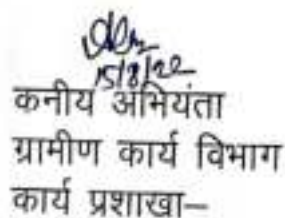 15/8/22
कनीय अभियंता
ग्रामीण कार्य विभाग
कार्य प्रशाखा—